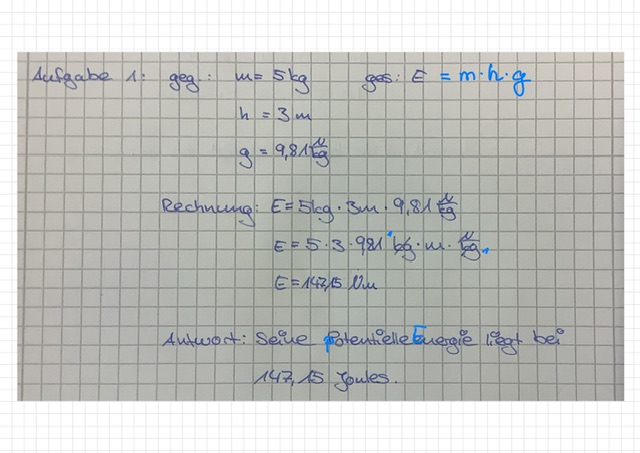 Aufgabe 1: geg.: m = 5 kg ges: E = m · h · g
h = 3 m
g = 9,81 N/kg
Rechnung: E = 5kg · 3m · 9,81 N/kg
E = 5 · 3 · 9,81 kg · m · N/kg
E = 147,15 Nm
Antwort: Seine potentielle Energie liegt bei
147,15 Joules.